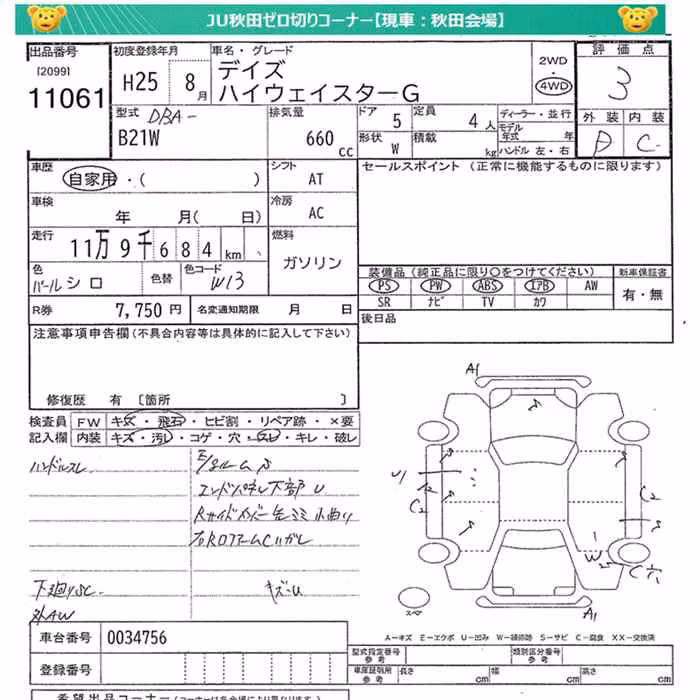 JU秋田ゼロ切りコーナー【現車:秋田会場】
出品番号
[2099]
11061
初度登録年月
H25 8月
車名・グレード
デイズ
ハイウェイスターG
2WD
・
4WD
評価点
3
外装 内装
D C
型式 DBA-
B21W
排気量
660 cc
ドア 5
定員 4人
形状 W
積載 kg
ディーラー・並行
モデル年式 年
ハンドル 左・右
車歴
自家用・( )
シフト
AT
車検
年 月( 日)
冷房
AC
走行
11万9千684km
燃料
ガソリン
色
パールシロ
色替
色コード
W13
R券 7,750円
名変通知期限 月 日
セールスポイント (正常に機能するものに限ります)
装備品(純正品に限り○をつけてください)
新車保証書
PS PW ABS エアB AW
SR ナビ TV カワ
有・無
後日品
注意事項申告欄(不具合内容等は具体的に記入して下さい)
修復歴 有 [箇所 ]
検査員
記入欄
FW キズ・飛石・ヒビ割・リペア跡・×要
内装 キズ・汚レ・コゲ・穴・スレ・キレ・破レ
ハンドルスレ
エンドパネル下部 U
下廻りSC
キズ・U
外AW
A1
U1
C2
C2
W2
C穴
スペア
A1
A-キズ E-エクボ U-凹み W-補修跡 S-サビ C-腐食 XX-交換済
車台番号 0034756
登録番号
型式指定番号
参考
類別区分番号
参考
車庫証明用
参考
長さ cm
幅 cm
高さ cm
希望出品コーナー